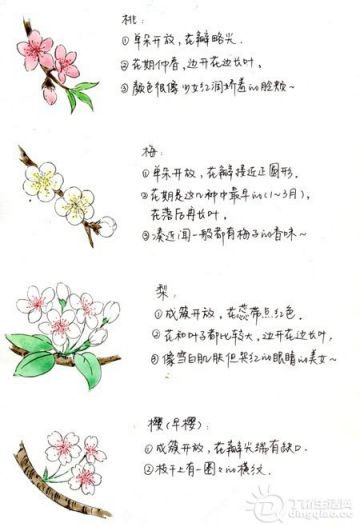 桃:
①单朵开放,花瓣略尖.
②花期仲春,边开花边长叶,
③颜色很像少女红润娇羞的脸颊~
梅:
①单朵开放,花瓣接近正圆形.
②花期是这几种中最早的(1~3月),
花落后再长叶.
③凑近闻一般都有梅子的香味~
梨:
①成簇开放,花蕊带点红色.
②花和叶子都比较大,边开花边长叶,
③像雪白肌肤但哭红的眼睛的美女~
樱(早樱):
①成簇开放,花瓣尖端有缺口.
②枝干上有一圈々的横纹.
丁香生活网
dingxiao.cc